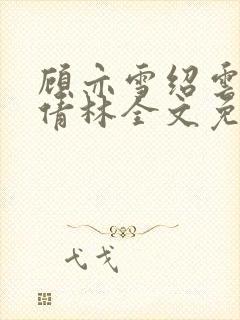 顾亦雪绍雲
倩林全文免
弋戈